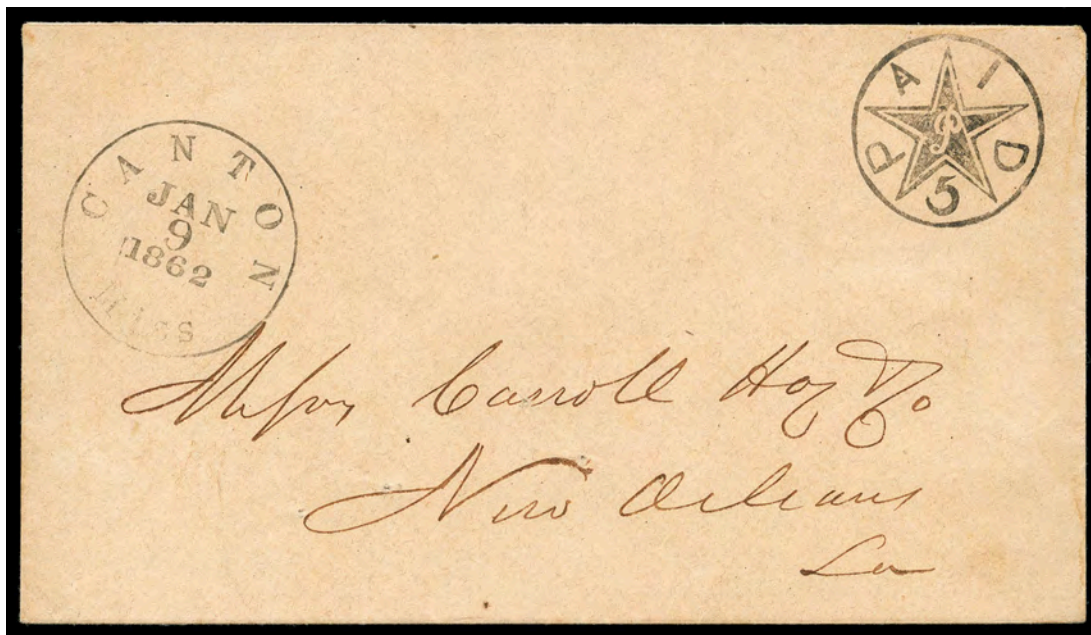 CANTON
JAN
9
1862
Miss
PAID
P
5
Messrs Carroll Hoy & Co
New Orleans
La